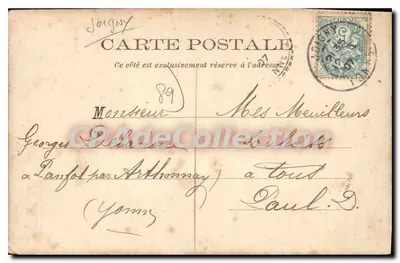 Joigny
CARTE POSTALE
Ce côté est exclusivement réservé à l'adresse
89
Monsieur
Georges
à Panfol par Arthonnay
(Yonne)
Mes Meilleurs
à tous
Paul. D.
CPADeCollection
JOIGNY
07